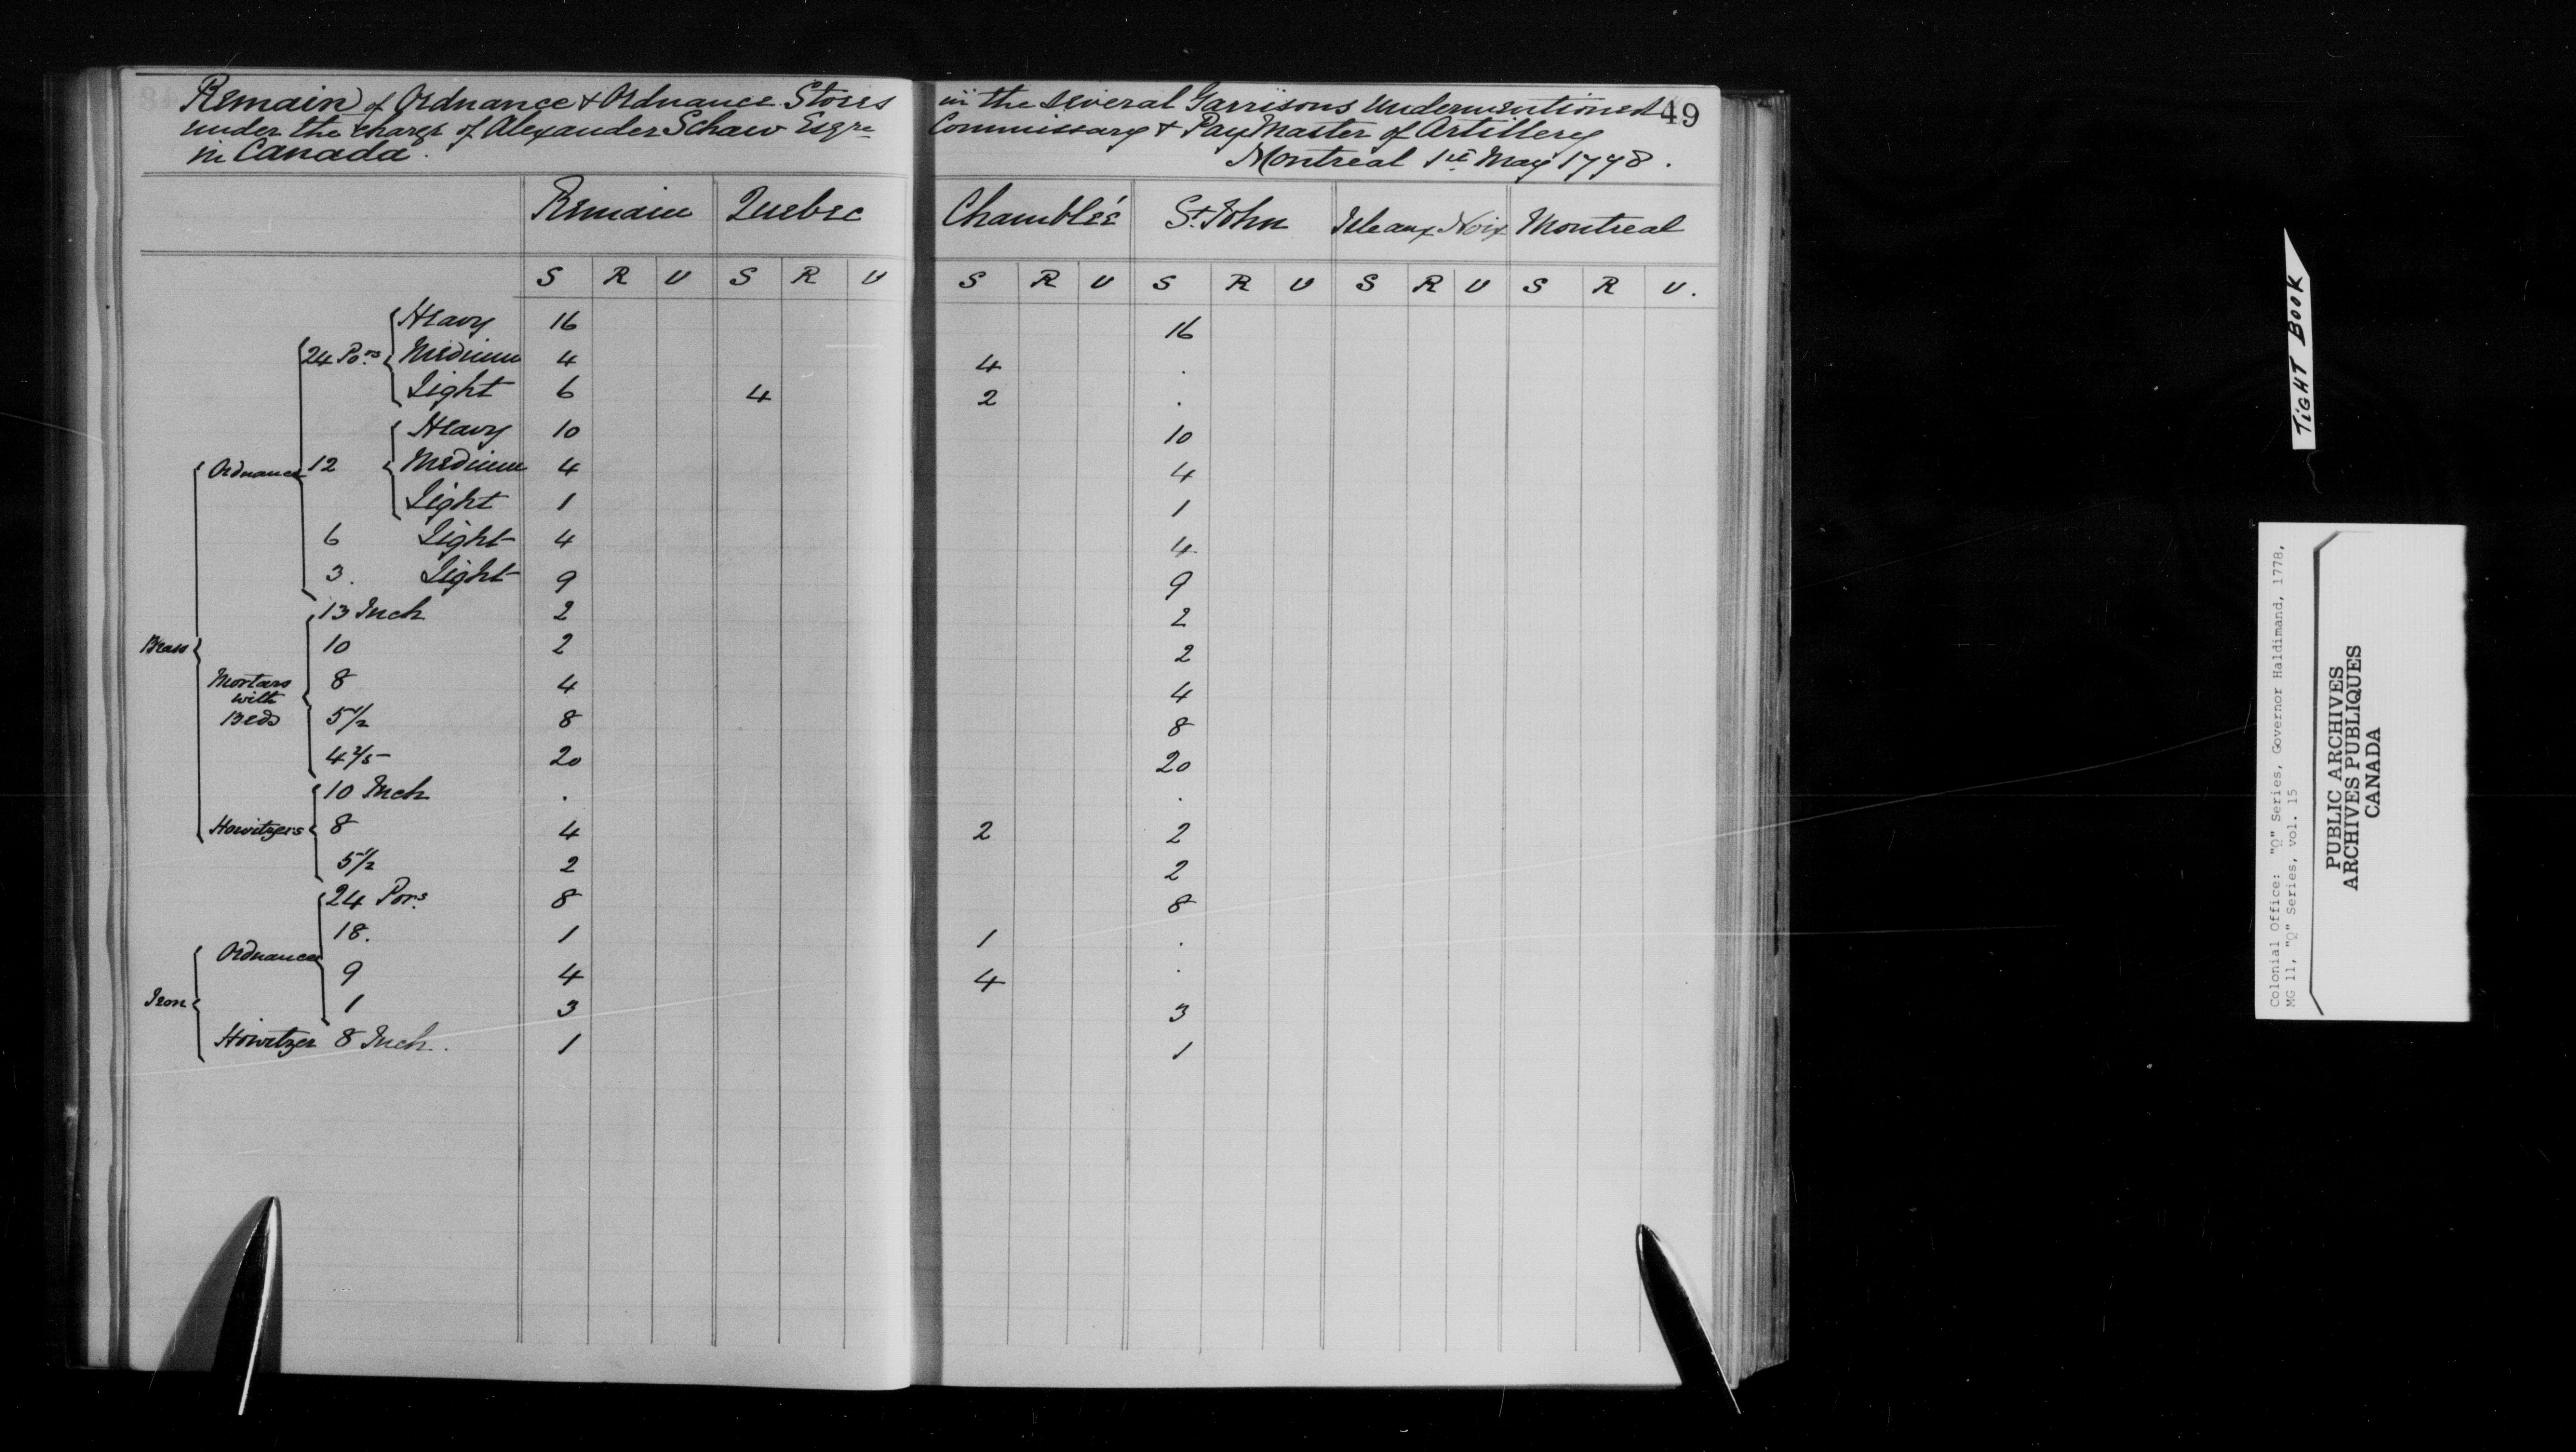 Remain of Ordnance & Ordnance Stores in the several Garrisons Undermentioned 49
under the charge of Alexander Schaw Esqre Commissary & Pay Master of Artillery
in Canada. Montreal 1st May 1778.
Remain Quebec Chamblée St. John Isle aux Noix Montreal
S R U S R U S R U S R U S R U S R U.
Brass
Ordnance
24 Pors Heavy 16 16
Medium 4 4 .
Light 6 4 2 .
12 Heavy 10 10
Medium 4 4
Light 1 1
6 Light 4 4
3. Light 9 9
Mortars with Beds
13 Inch 2 2
10 2 2
8 4 4
5 1/2 8 8
4 2/5 20 20
Howitzers
10 Inch . .
8 4 2 2
5 1/2 2 2
Iron
Ordnance
24 Pors 8 8
18. 1 1 .
9 4 4 .
1 3 3
Howitzer 8 Inch. 1 1
TIGHT BOOK
Colonial Office: "Q" Series, Governor Haldimand, 1778,
MG 11, "Q" Series, vol. 15
PUBLIC ARCHIVES
ARCHIVES PUBLIQUES
CANADA